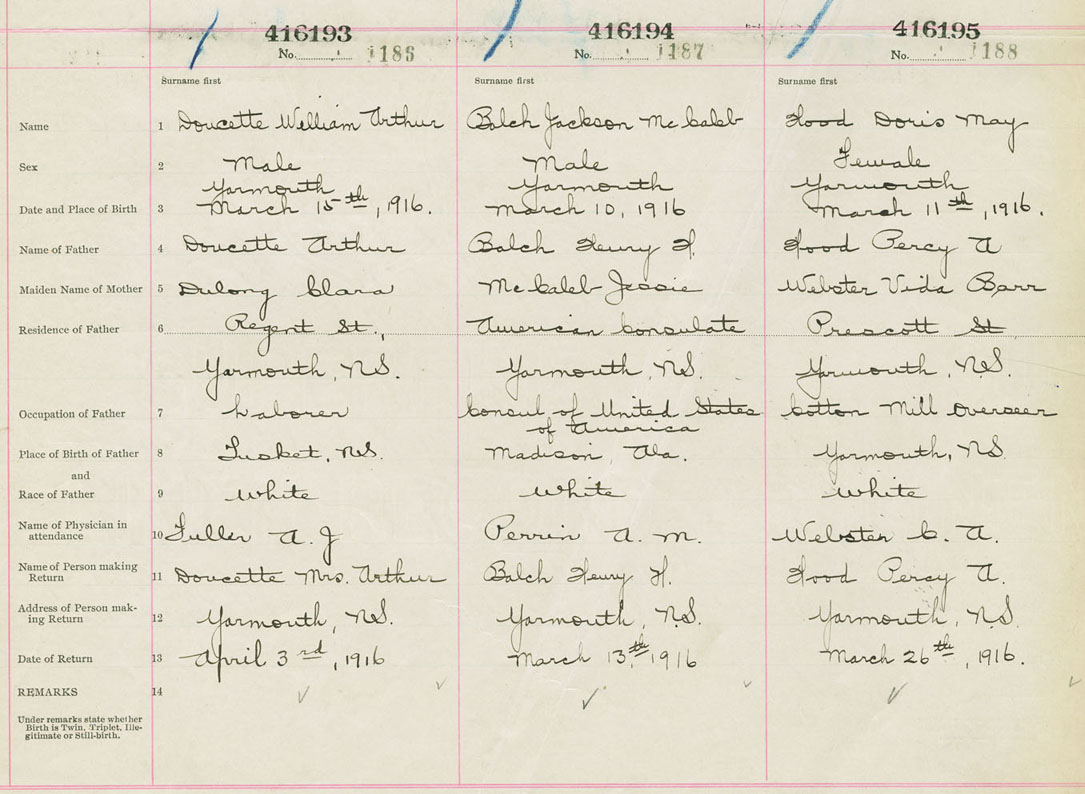 416193 416194 416195
No. 1186 No. 1187 No. 1188
Surname first Surname first Surname first
Name 1 Doucette William Arthur Balch Jackson McCaleb Hood Doris May
Sex 2 Male Male Female
Yarmouth Yarmouth Yarmouth
Date and Place of Birth 3 March 15th, 1916. March 10, 1916 March 11th, 1916.
Name of Father 4 Doucette Arthur Balch Henry H. Hood Percy A
Maiden Name of Mother 5 Dulong Clara McCaleb Jessie Webster Vida Barr
Residence of Father 6 Regent St., American Consulate Prescott St
Yarmouth, N.S. Yarmouth, N.S. Yarmouth, N.S.
Occupation of Father 7 Laborer Consul of United States Cotton Mill Overseer
of America
Place of Birth of Father 8 Tusket, N.S. Madison, Ala. Yarmouth, N.S
and
Race of Father 9 White White White
Name of Physician in
attendance 10 Fuller A. J Perrin A. M. Webster C. A.
Name of Person making
Return 11 Doucette Mrs. Arthur Balch Henry H. Hood Percy A.
Address of Person mak-
ing Return 12 Yarmouth, N.S. Yarmouth, N.S. Yarmouth, N.S.
Date of Return 13 April 3rd, 1916 March 13th, 1916 March 26th, 1916.
REMARKS 14
Under remarks state whether
Birth is Twin, Triplet, Ille-
gitimate or Still-birth.